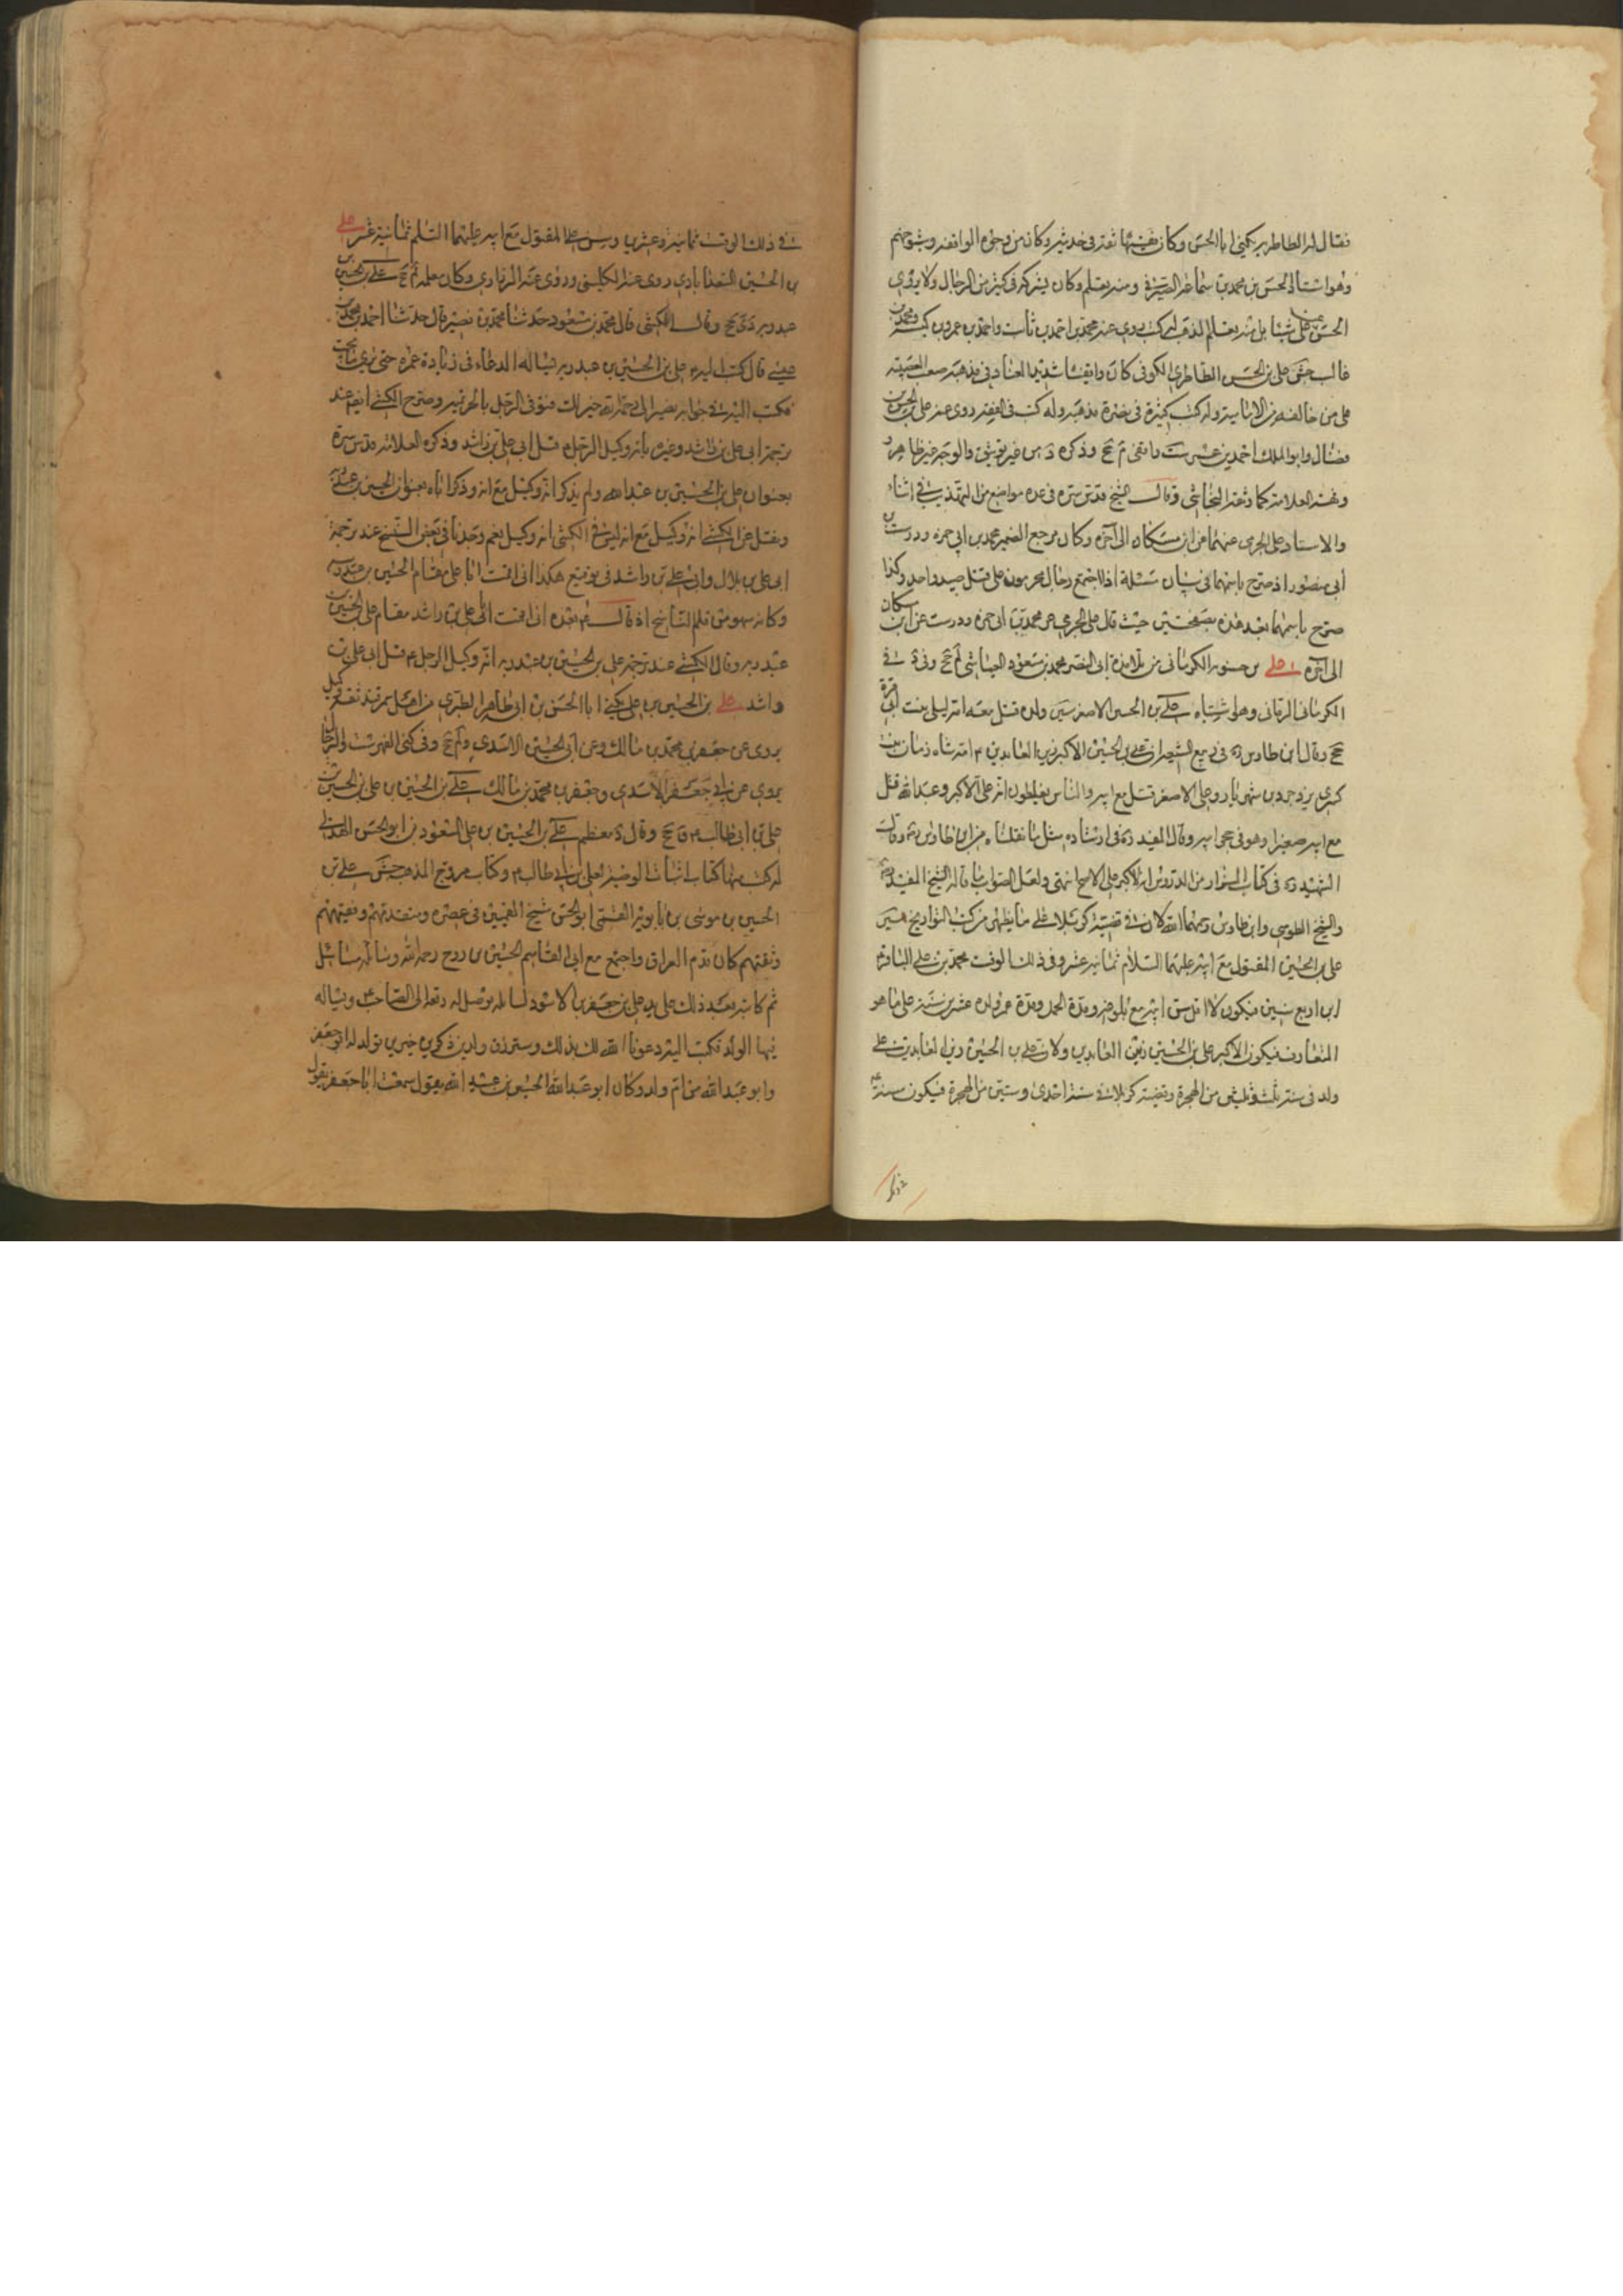 فقال له الطاطري يكنى ابا الحسن وكان فقيها ثقة في حديثه وكان من وجوه الواقفة وشيوخهم
وهو استاد الحسن بن محمد بن سماعة الصيرفي ومنه تعلم وكان يشركه في كثير من الرجال ولا يروي
الحسن عن علي شيئا بل منه تعلم المذهب له كتب روى عنه محمد بن احمد بن ثابت واحمد بن عمرو بن كيسبة ومحمد بن
غالب جش علي بن الحسن الطاطري الكوفي كان واقفا شديد العناد في مذهبه صعب العصبية
على من خالفه من الامامية وله كتب كثيرة في نصرة مذهبه وله كتب في الفقه روى عنه علي بن الحسن بن
فضال وابو الملك احمد بن عمر ست واقفي م جخ وذكره د من غير توثيق والوجه غير ظاهر و
وثقه العلامة كما وثقه النجاشي وقال الشيخ قدس سره في عدة مواضع من التهذيب في اثناء
والاسناد علي الجرمي عنهما عن ابن مسكان الى آخره وكان مرجع الضمير محمد بن ابي حمزة ودرست بن
أبي منصور اذ صرح باسمهما في بيان مسئلة اذا اجتمع رجال محرمون على قتل صيد واحد وكذا
صرح باسمهما بعد هذه بصفحتين حيث قال علي الجرمي عن محمد بن ابي حمزة ودرست عن ابن مسكان
الى آخره علي بن حسنويه الكرماني من تلامذة ابي النضر محمد بن مسعود العياشي لم جخ وفي د في
الكرماني الرماني وهو اشتباه علي بن الحسين الاصغر سين ولده قتل معه امه ليلى بنت ابي قرة
جخ وقال ابن طاوس ره في ربيع الشيعة ان علي بن الحسين الاكبر زين العابدين ع امه شاه زنان بنت
كسرى يزدجرد بن شهريار وعلي الاصغر قتل مع ابيه والناس يغلطون انه علي الاكبر وعبد الله قتل
مع ابيه صغيرا وهو في حجر ابيه وقال المفيد ره في ارشاده مثل ما نقلناه من ابن طاوس ره وقال
الشهيد ره في كتاب المزار من الدروس انه الاكبر على الاصح انتهى ولعل الصواب ما قاله الشيخ المفيد ره
والشيخ الطوسي وابن طاوس رحمهما الله لان في قضية كربلا على ما يظهر من كتب التواريخ سن
علي بن الحسين المقتول مع ابيه عليهما السلام ثمانية عشر وفي ذلك الوقت محمد بن علي الباقر ع
ابن اربع سنين فيكون لا اقل سن ابيه مع بلوغه ومدة الحمل ومدة عمر ولده عشرين سنة على ما هو
المتعارف فيكون الاكبر علي بن الحسين زين العابدين ولان علي بن الحسين زين العابدين علي
ولد في سنة ثلث وثلثين من الهجرة وقضية كربلا في سنة احدى وستين من الهجرة فيكون سنه ع
في ذلك
في ذلك الوقت ثمانية وعشرين وسن علي المقتول مع ابيه عليهما السلم ثمانية عشر علي
بن الحسين السعدابادي روى عنه الكليني وروى عنه الزراري وكان معلمه لم جخ علي بن الحسين بن
عبد ربه دي جخ وقال الكشي قال محمد بن مسعود حدثنا محمد بن نصير قال حدثنا احمد بن محمد بن
عيسى قال كتب اليه ع علي بن الحسين بن عبد ربه يسأله الدعاء في زيادة عمره حتى يرى ما يحب
فكتب اليه في جوابه تصير الى رحمة الله خير لك فتوفي الرجل بالخزيمية وصرح الكشي ايضا عند
ترجمة ابي علي بن راشد وغيره بانه وكيل الرجل ع قبل ابي علي بن راشد وذكره العلامة قدس سره
بعنوان علي بن الحسين بن عبد الله ولم يذكر انه وكيل مع انه وذكر اباه بعنوان الحسين بن عبد ربه
ونقل عن الكشي انه وكيل مع انه ليس في الكشي انه وكيل نعم وجدنا في بعض النسخ عند ترجمة
ابي علي بن بلال وابي علي بن راشد في توقيع هكذا اني اقمت ابا علي مقام الحسين بن عبد ربه
وكانه سهو من قلم الناسخ اذ قال ع بعده اني اقمت ابا علي بن راشد مقام علي بن الحسين بن
عبد ربه وقال الكشي عند ترجمة علي بن الحسين بن عبد ربه انه وكيل الرجل ع قبل ابي علي بن
راشد علي بن الحسين بن علي يكنى ابا الحسن بن ابي طاهر الطبري من اهل سمرقند ثقة وكيل
يروي عن جعفر بن محمد بن مالك وعن ابي الحسين الاسدي لم جخ وفي كنى الفهرست والرجال
يروي عن ابي جعفر الاسدي وجعفر بن محمد بن مالك علي بن الحسين بن علي بن الحسين بن
علي بن ابي طالب ع ق جخ وقال د معظم علي بن الحسين بن علي المسعودي ابو الحسن الهذلي
له كتب منها كتاب اثبات الوصية لعلي بن ابي طالب ع وكتاب مروج الذهب جش علي بن
الحسين بن موسى بن بابويه القمي ابو الحسن شيخ القميين في عصره ومتقدمهم وفقيههم
وثقتهم كان قدم العراق واجتمع مع ابي القاسم الحسين بن روح رحمه الله وسأله مسائل
ثم كاتبه بعد ذلك على يد علي بن جعفر بن الاسود يسأله ان يوصل له رقعة الى الصاحب ع ويسأله
فيها الولد فكتب اليه قد دعونا الله لك بذلك وسترزق ولدين ذكرين خيرين فولد له ابو جعفر
وابو عبد الله من ام ولد وكان ابو عبد الله الحسين بن عبيد الله يقول سمعت ابا جعفر يقول